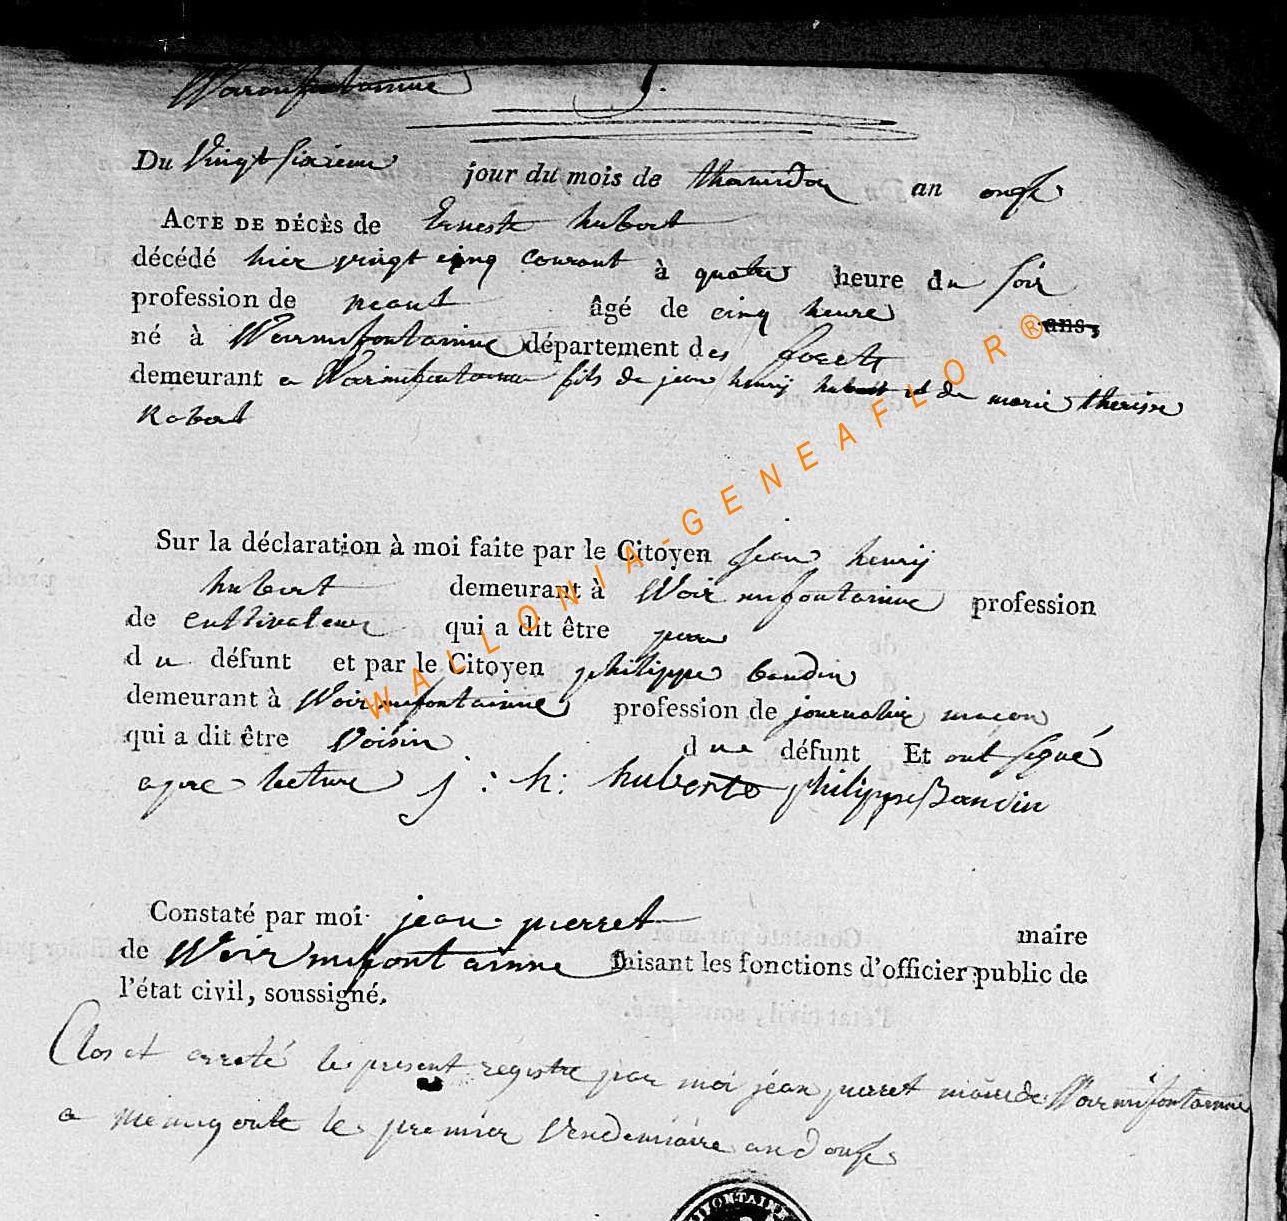 Warmifontainne 9.
Du Vingt sixieme jour du mois de thermidor an onze
ACTE DE DÉCÈS de Erneste hubert
décédé hier vingt cinq courant à quatre heure du soir
profession de neant âgé de cinq heure ans,
né à Warmifontainne département des forets
demeurant a Warmifontainne fils de jean henrij hubert et de marie therese
Robert
Sur la déclaration à moi faite par le Citoyen jean henrij
hubert demeurant à Warmifontainne profession
de cultivateur qui a dit être pere
du défunt et par le Citoyen philippe baudin
demeurant à Warmifontainne profession de journalier macon
qui a dit être Voisin due défunt Et ont signé
apre lecture j : h : huberte philippe Baudin
Constaté par moi jean pierret maire
de Warmifontainne faisant les fonctions d'officier public de
l'état civil, soussigné.
Clos et arreté le present régistre par moi jean pierret maire de Warmifontainne
a le premier Vendemiaire an douze
IFONTAINE
WALLONIA-GENEAFLOR®